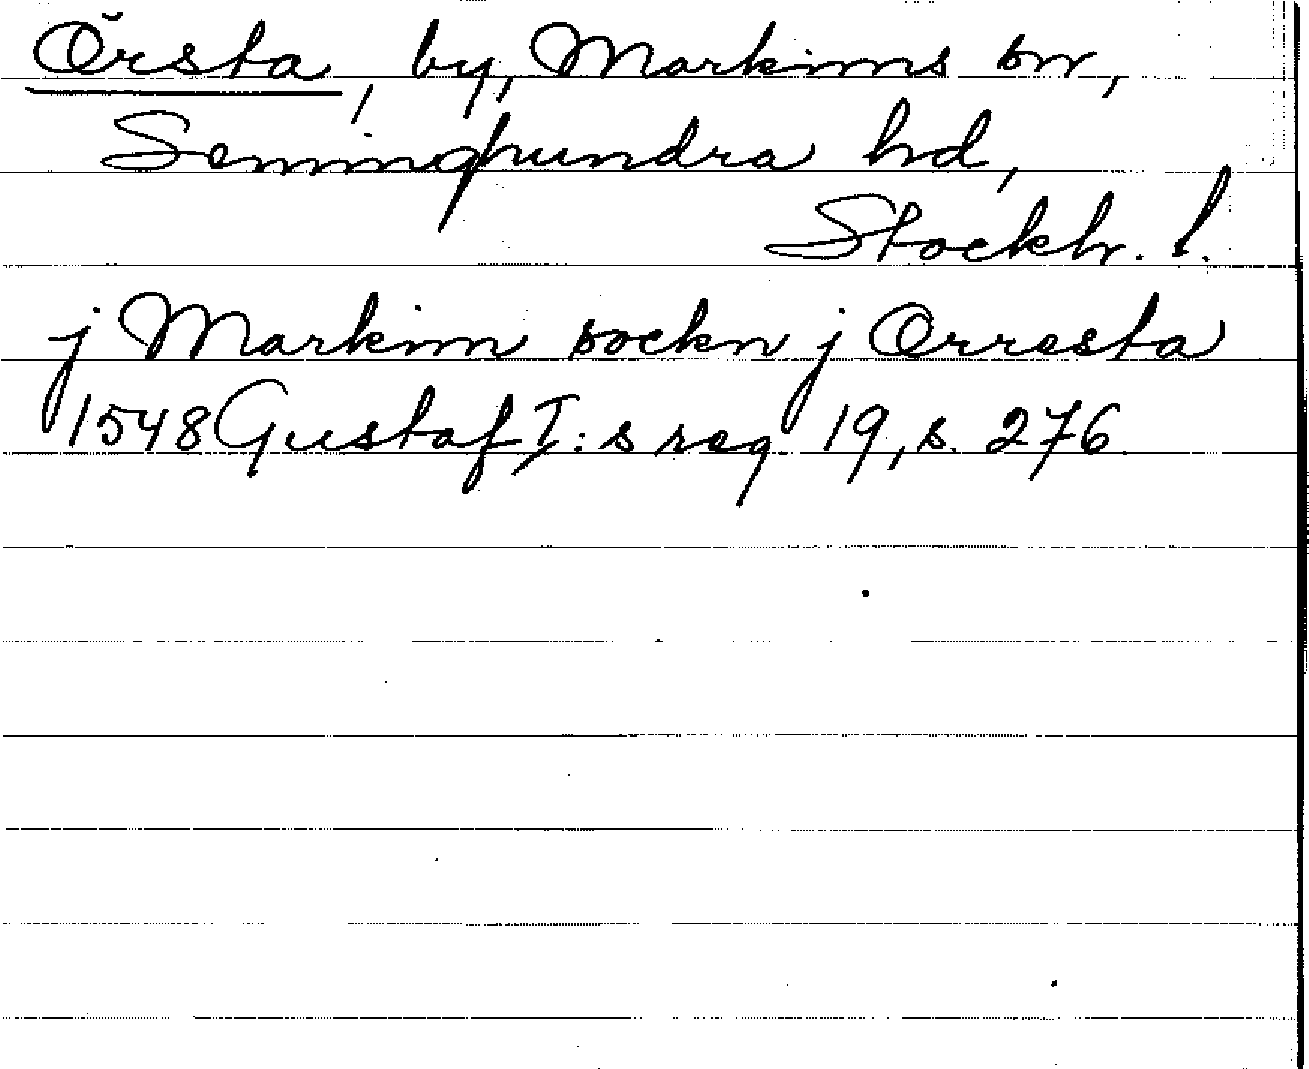 Örsta, by, Markims sn,
Seminghundra hd,
Stockh. l.
j Markim sockn j Orresta
1548 Gustaf I:s reg 19, s. 276.